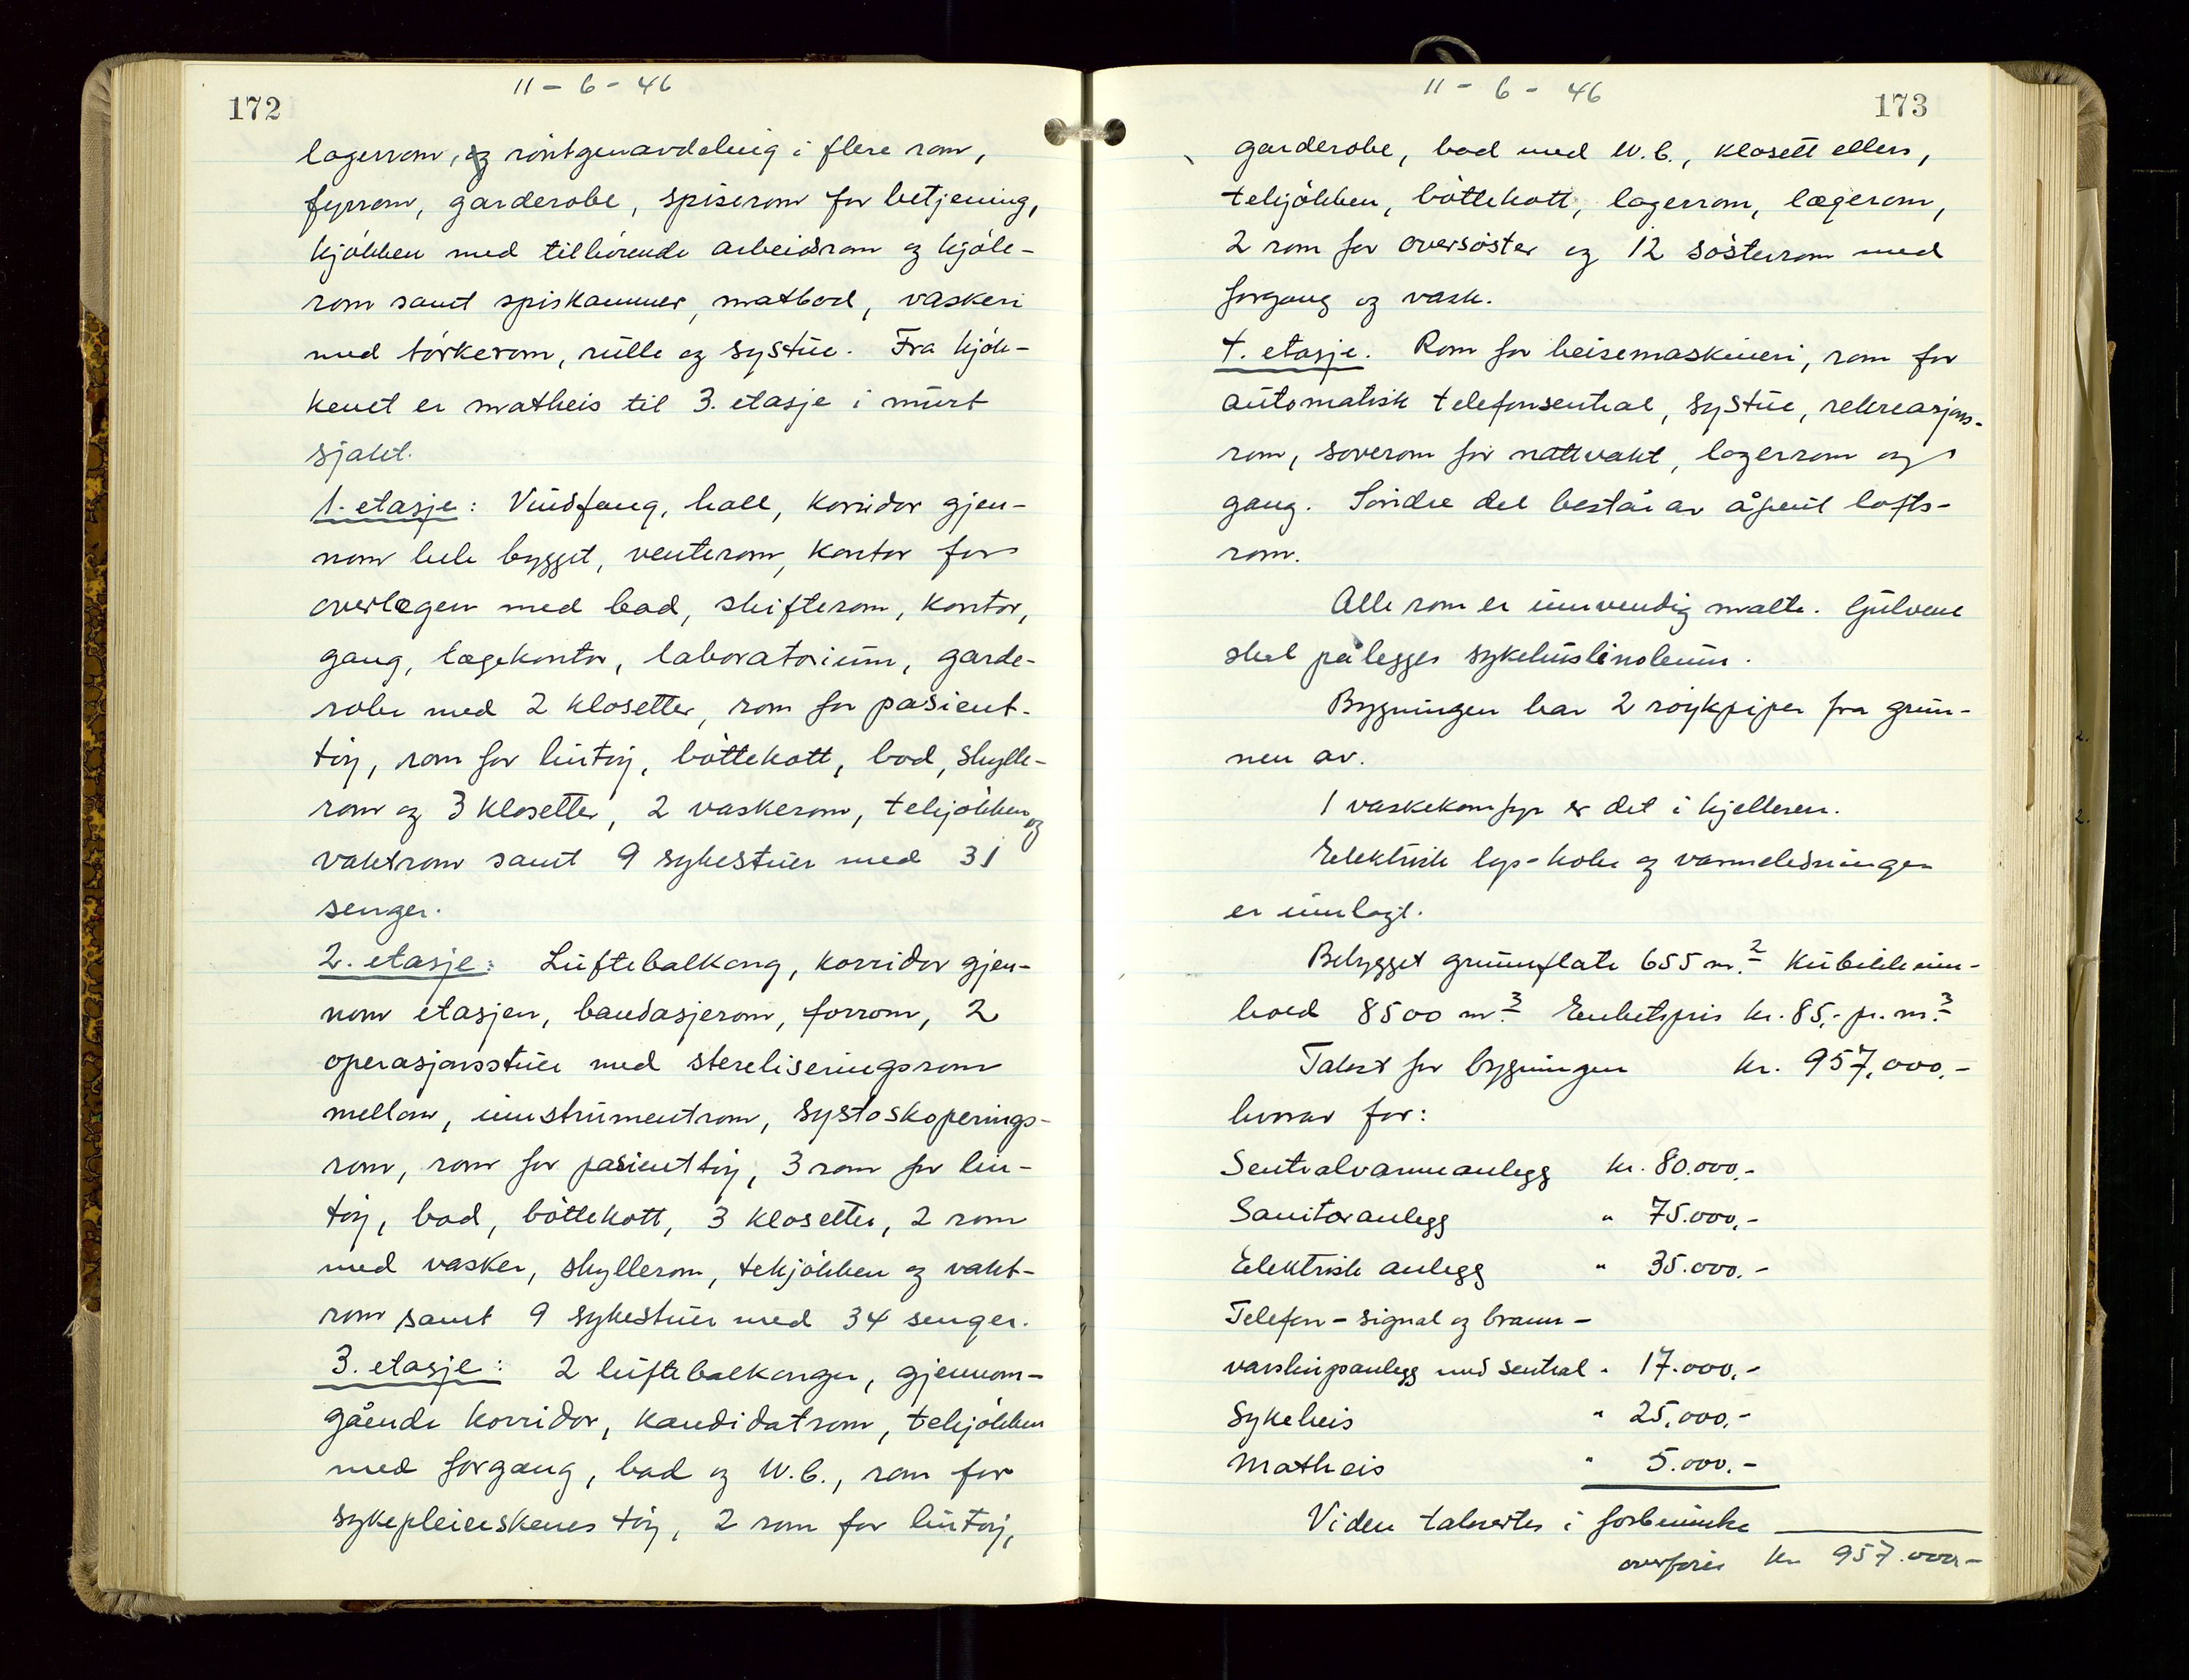 172
11 - 6 - 46
lagerrom, og röntgenavdeling i flere rom,
fyrrom, garderobe, spiserom for betjening,
kjökken med tilhörende arbeidsrom og kjöle-
rom samt spiskammer, matbod, vaskeri
med törkerom, rulle og systue. Fra kjök-
kenet er matheis til 3. etasje i murt
sjakt.
1. etasje: Vindfang, hall, korridor gjen-
nom hele bygget, venterom, kontor for
overlægen med bad, skifterom, kontor,
gang, lægekontor, laboratorium, garde-
robe med 2 klosetter, rom for pasient-
töy, rom for lintöy, böttekott, bad, skylle-
rom og 3 klosetter, 2 vaskerom, tekjökken og
vaktrom samt 9 sykestuer med 31
senger.
2. etasje: Luftebalkong, korridor gjen-
nom etasjen, bandasjerom, forrom, 2
operasjonsstuer med stereliseringsrom
mellom, innstrumentrom, systoskoperings-
rom, rom for pasienttöy, 3 rom for lin-
töy, bad, böttekott, 3 klosetter, 2 rom
med vasker, skyllerom, tekjökken og vakt-
rom samt 9 sykestuer med 34 senger.
3. etasje: 2 luftebalkonger, gjennom-
gående korridor, kandidatrom, tekjökken
med forgang, bad og W.C., rom for
sykepleierskenes töy, 2 rom for lintöy,
11 - 6 - 46
173
garderobe, bad med W.C., klosett ellers,
tekjökken, böttekott, lagerrom, lægerom,
2 rom for oversöster og 12 sösterrom med
forgang og vask.
4. etasje. Rom for heisemaskineri, rom for
automatisk telefonsentral, systue, rekreasjons-
rom, soverom for nattvakt, lagerrom og
gang. Söndre del består av åpent lofts-
rom.
Alle rom er innvendig malte. Gulvene
skal pålegges sykehuslinoleum.
Bygningen har 2 röykpiper fra grun-
nen av.
1 vaskekomfyr er det i kjelleren.
Elektrisk lys- koke og varmeledninger
er innlagt.
Bebygget grunnflate 655 m.2 Kubikkinn-
hold 8500 m.3 Enhetspris kr. 85,- pr. m.3
Takst for bygningen kr. 957.000.-
hvorav for:
Sentralvarmeanlegg kr. 80.000.-
Sanitæranlegg " 75.000,-
Elektrisk anlegg " 35.000.-
Telefon- signal og brann-
varslingsanlegg med sentral " 17.000,-
Sykeheis " 25.000,-
Matheis " 5.000.-
Viden takseres i forbinnelse
overföres kr 957.000,-